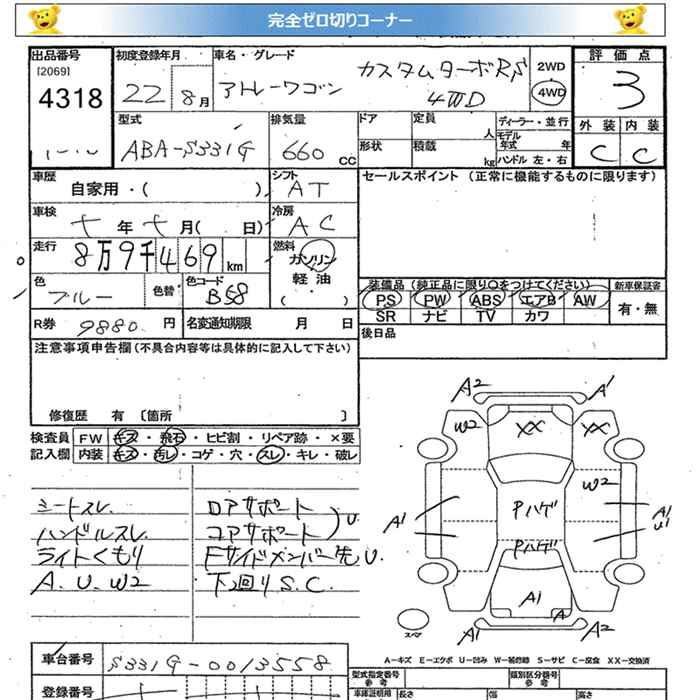 完全ゼロ切りコーナー
出品番号 初度登録年月 車名・グレード 評価点
[2069]
4318 22 8月 アトレーワゴン カスタムターボRS 4WD 2WD 4WD 3
型式 排気量 ドア 定員 人 ディーラー・並行 外装 内装
ABA-S331G 660 CC 形状 積載 kg モデル年式 年 ハンドル 左・右 C C
車歴 自家用・( ) シフト AT セールスポイント (正常に機能するものに限ります)
車検 年 月( 日) 冷房 AC
走行 8万9千469km 燃料 ガソリン 軽油 ( )
色 ブルー 色替 色コード B58
装備品 (純正品に限り○をつけてください) 新車保証書
PS PW ABS エアB AW 有・無
SR ナビ TV カワ
R券 9880 円 名変通知期限 月 日 後日品
注意事項申告欄(不具合内容等は具体的に記入して下さい)
修復歴 有 〔箇所 〕
検査員記入欄 FW キズ・飛石・ヒビ割・リペア跡・×要
内装 キズ・汚レ・コゲ・穴・スレ・キレ・破レ
シートスレ ロアサポート
ハンドルスレ コアサポート U
ライトくもり FサイドメンバーU.
A.U.W2 下回りS.C.
A2 A1
W2 XX XX
W2
A1 Pハゲ A1 U1
Pハゲ
A1 A
スペア A1 A2
A-キズ E-エクボ U-凹み W-補修跡 S-サビ C-腐食 XX-交換済
車台番号 S331G-0013558 型式指定番号 参考 類別区分番号 参考
登録番号 車庫証明用 長さ 幅 高さ